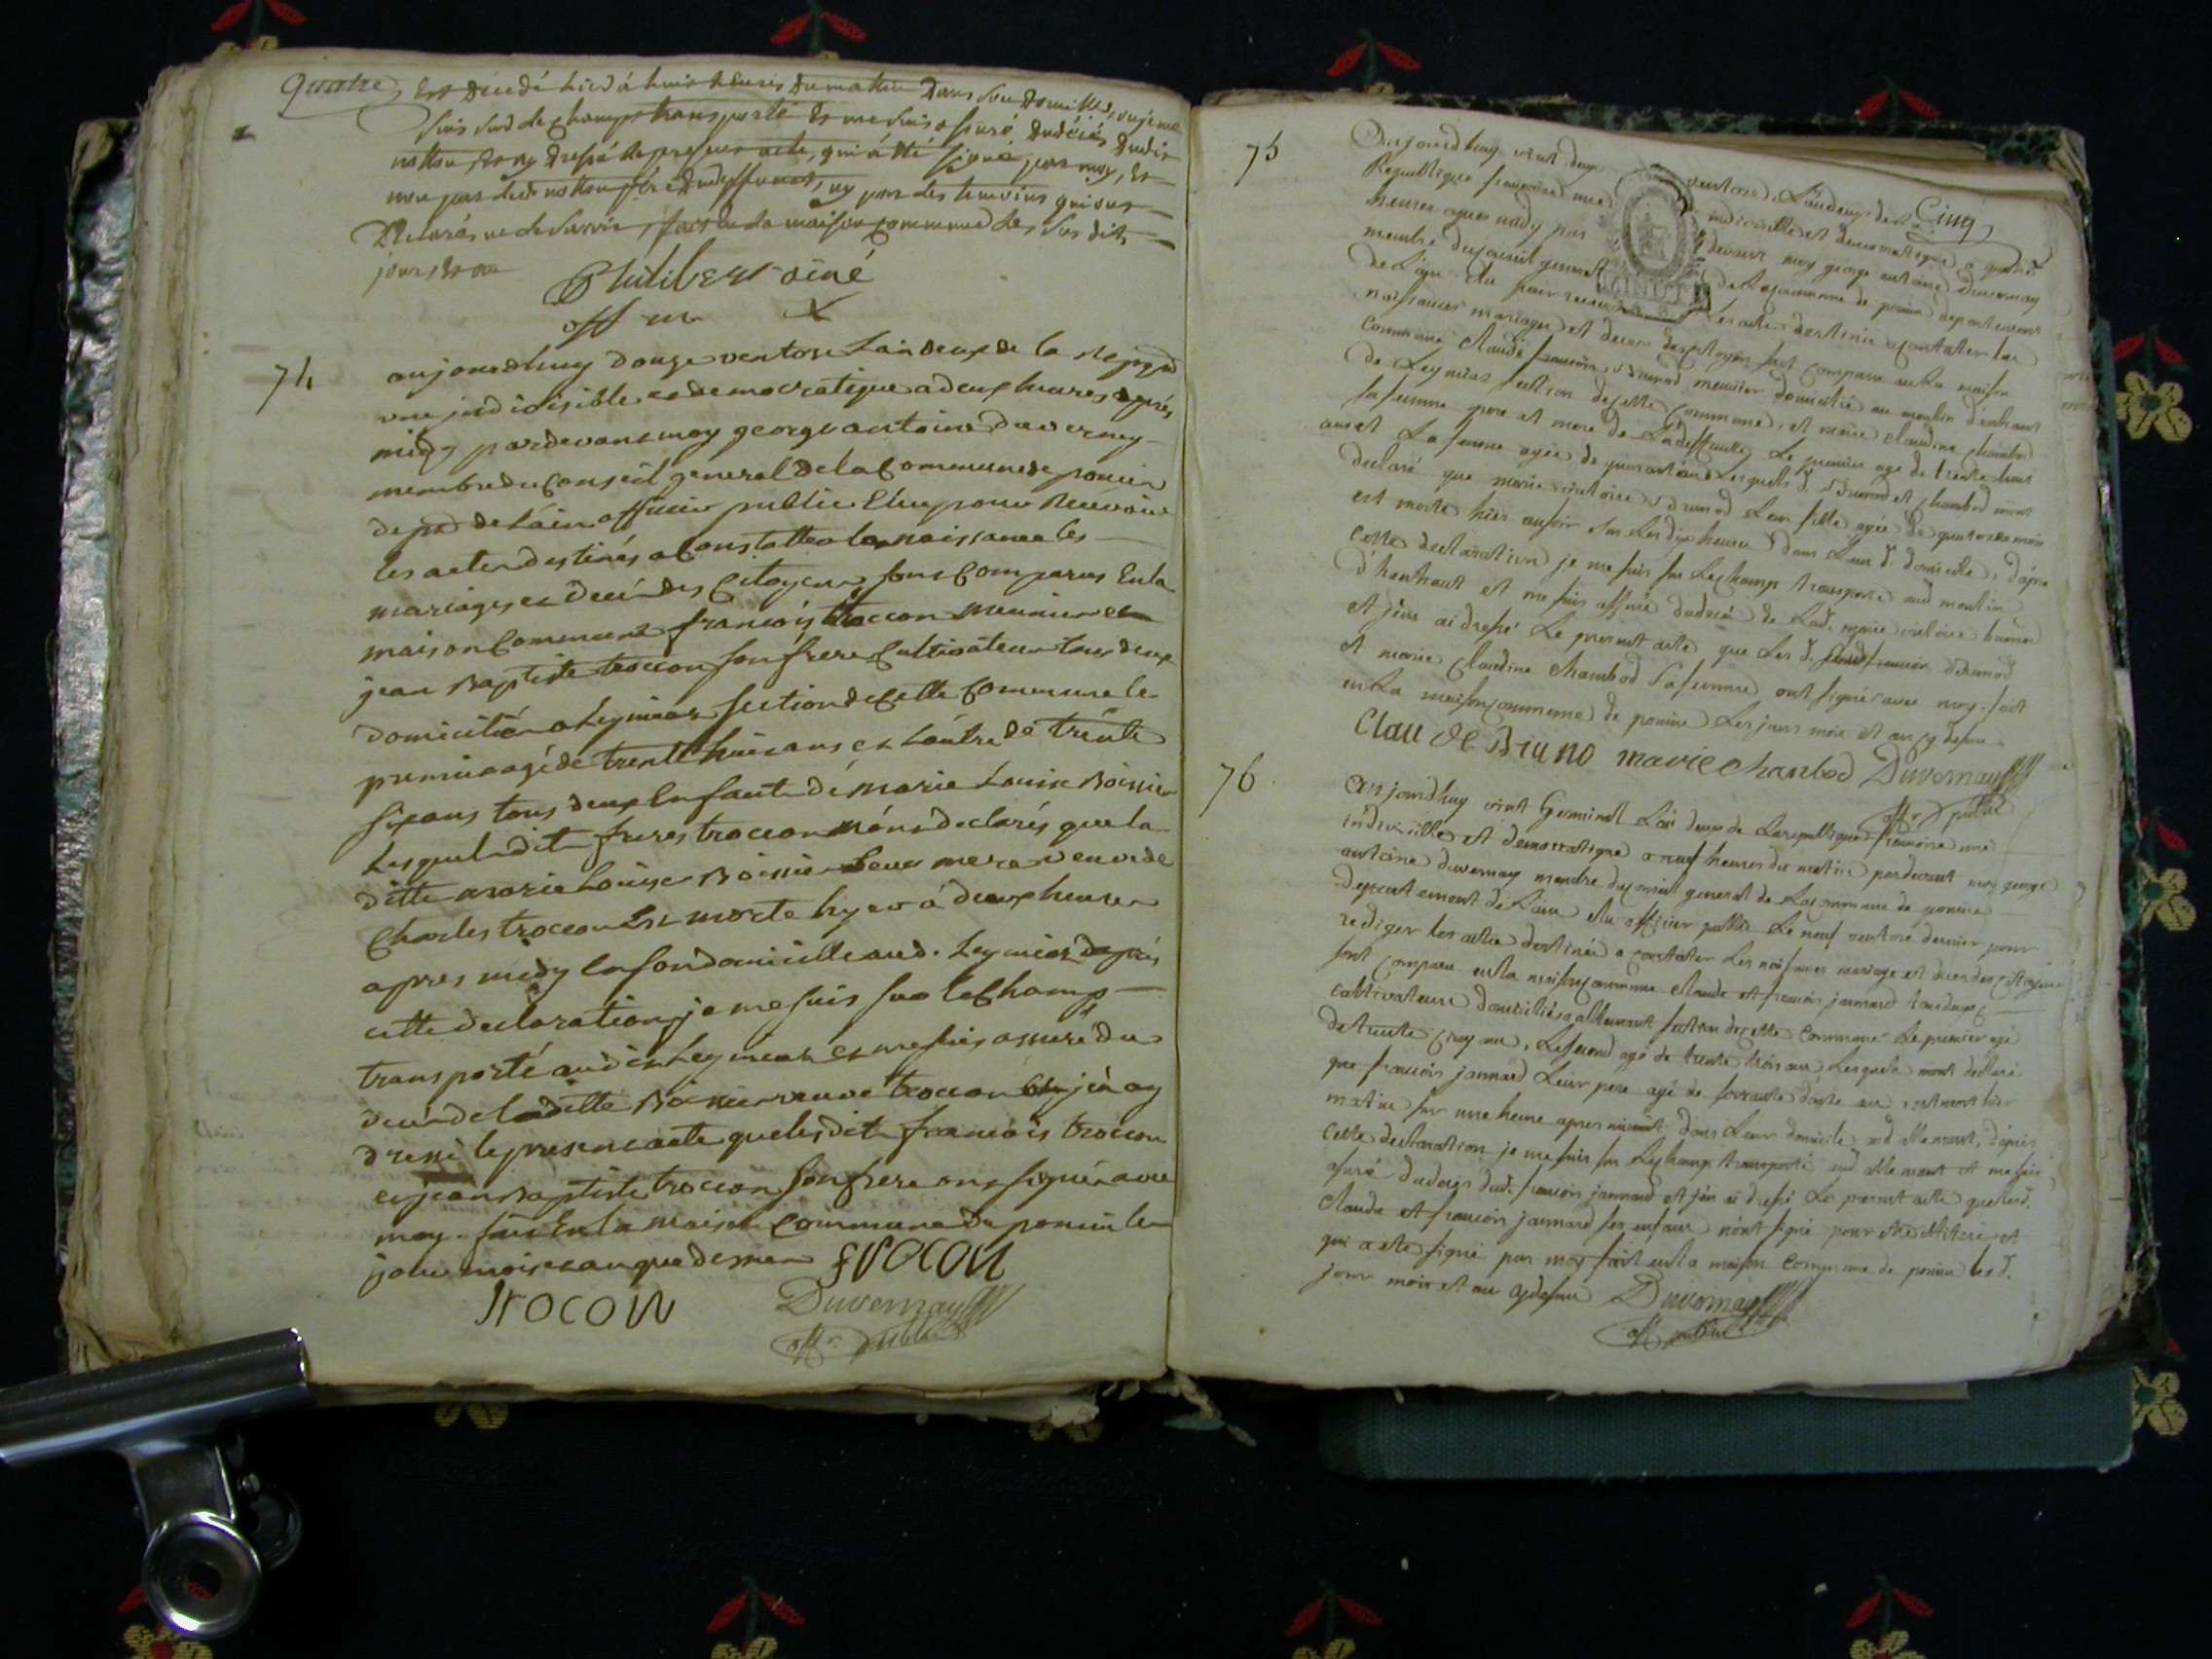 Quatre
Est décédé hier à huit heures du matin Dans son Domicille, ou je me
suis sur le champ transporté Et me suis assuré du décès dudit
Et ay Dressé le present acte, qui a été signé par moy, Et
non par ledit père du deffunct, ny par les temoins qui ont
Déclarés ne le savoir, fait En la maison commune les sus dits
jour Et an
Philibert ainé
off m
74
aujourdhuy douze ventose Lan deux de la Repque
une indivisible et democratique a deux heures après
midy pardevant moy george antoine duverney
membre du Conseil general de la Commune de poncin
dept de Lain officier public Elu pour Recevoir
les actes destinés a Constatter les naissances les
mariages et décés des Citoyens sont Comparus En la
maison Commune francois trocon meunier et
jean Baptiste trocon son frere Cultivateur tous deux
domiciliés a Leymiat section de Cette Commune le
premier agé de trente huit ans et Lautre de trente
six ans tous deux Enfants de marie Louise Boissier
Lesquels dits freres trocon m'ont declarés que la
ditte marie Louise Boissier Leur mere veuve de
Charles trocon Est morte hyer à deux heures
apres midy En son domicille aud. Leymiat d'après
cette declaration je me suis sur le Champ
transporté audit Leymiat et me suis assuré du
décés de la ditte Boissier veuve trocon Et j'en ay
dressé le present acte que lesdits francois trocon
et jean Baptiste trocon son frere ont signés avec
moy. fait En la maison Commune de poncin les
jour mois et an que dessus trocon
trocon Duvernay
offr public
75
Cinq
Aujourdhuy vint deux ventose L'an deux de la
Republique francoise une indivisible et democratique a quatre
heures apres midy par devant moy george antoine Duvernay
membre du conseil general de La commune de poncin departement
de L'ain elu pour recevoir Les actes destinés a constater les
naissances mariages et deces des citoyens sont comparu en La maison
commune Claude francois Brunod meunier domicilié au moulin d'enhaut
de Leymiat section de cette commune, et marie claudine chambod
sa femme pere et mere de La deffuncte Le premier age de trente huit
ans et La femme agée de quarante ans Lesquels d. Brunod et chambod m'ont
declaré que marie victoire Brunod Leur fille agée de quatorze mois
est morte hier au soir sur Les dix heures dans Leur d. domicile, d'apres
cette declaration je me suis sur Le champ transporté aud moulin
d'henhaut et me suis assuré du décés de Lad. marie victoire brunod
et j'en ai dressé Le present acte que Les d. francois Brunod
et marie claudine Chambod sa femme ont signé avec moy. fait
en La maison commune de poncin Les jours mois et an cy dessus
Clau de Bruno marie chanbod Duvernay
offr public
76
Aujourdhuy vint Germinal L'an deux de La republique francoise une
indivisible et democratique a neuf heures du matin pardevant moy george
antoine duvernay membre du conseil general de La commune de poncin
departement de L'ain elu officier public Le neuf ventose dernier pour
rediger les actes destinés a constater Les naissances mariage et deces des citoyens
sont comparu en la maison commune claude et francois jannard tous deux
cultivateurs domiciliés a allemant section de cette commune Le premier agé
de trente cinq ans, Le second agé de trente trois ans, Lesquels m'ont declaré
que francois jannard Leur pere agé de soixante ans, est mort hier
matin sur une heure apres minuit dans Leur domicile aud allemant, d'après
cette declaration je me suis sur Le champ transporté aud allemant et me suis
assuré du deces dud. francois jannard et j'en ai dressé Le present acte que Les d.
Claude et francois jannard ses enfans n'ont signé pour etre illiteré et
qui a eté signé par moy fait en la maison commune de poncin les d.
jour mois et an cy dessus Duvernay
offr public